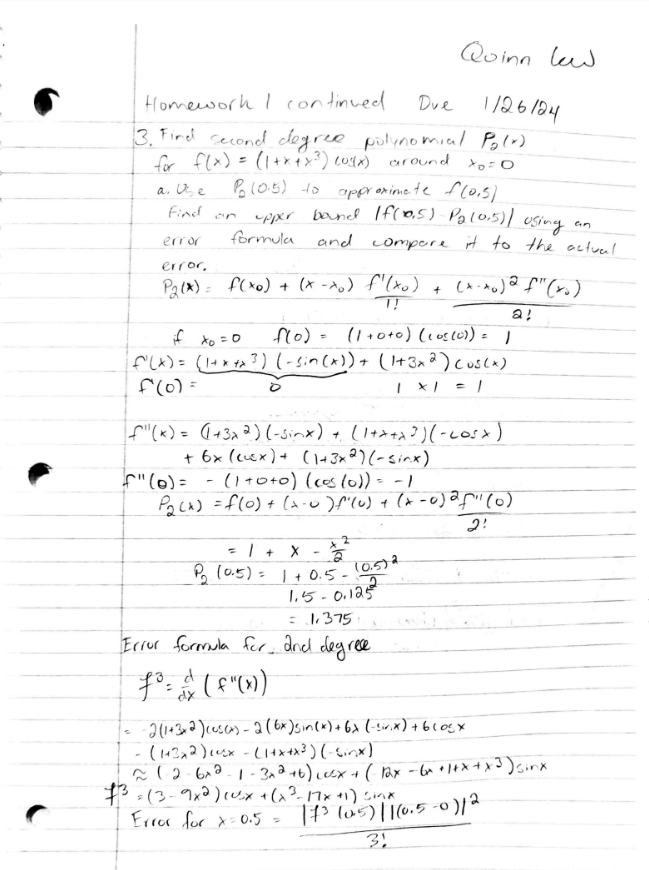 Quinn
Homework 1 continued Due 1/26/24
3. Find second degree polynomial P₂(x)
for f(x) = (1+x+x³) cos(x) around x₀=0
a. Use P₂(0.5) to approximate f(0.5)
Find an upper bound |f(0.5) - P₂(0.5)| using an
error formula and compare it to the actual
error.
P₂(x) = f(x₀) + (x-x₀) f'(x₀)/1! + (x-x₀)² f''(x₀)/2!
if x₀=0 f(0) = (1+0+0)(cos(0)) = 1
f'(x) = (1+x+x³)(-sin(x)) + (1+3x²)cos(x)
f'(0) = 0 1 x 1 = 1
f''(x) = (1+3x²)(-sinx) + (1+x+x³)(-cosx)
+ 6x(cosx) + (1+3x²)(-sinx)
f''(0) = -(1+0+0)(cos(0)) = -1
P₂(x) = f(0) + (x-0)f'(0) + (x-0)²f''(0)/2!
= 1 + x - x²/2
P₂(0.5) = 1 + 0.5 - (0.5)²/2
1.5 - 0.125
= 1.375
Error formula for 2nd degree
f³ = d/dx (f''(x))
= -2(1+3x²)cos(x) - 2(6x)sin(x) + 6x(-sinx) + 6cosx
- (1+3x²)cosx - (1+x+x³)(-sinx)
≈ (-2-6x²-1-3x²+6)cosx + (-12x-6x+1+x+x³)sinx
f³ = (3-9x²)cosx + (x³-17x+1)sinx
Error for x=0.5 = |f³(0.5)||(0.5-0)|²/3!